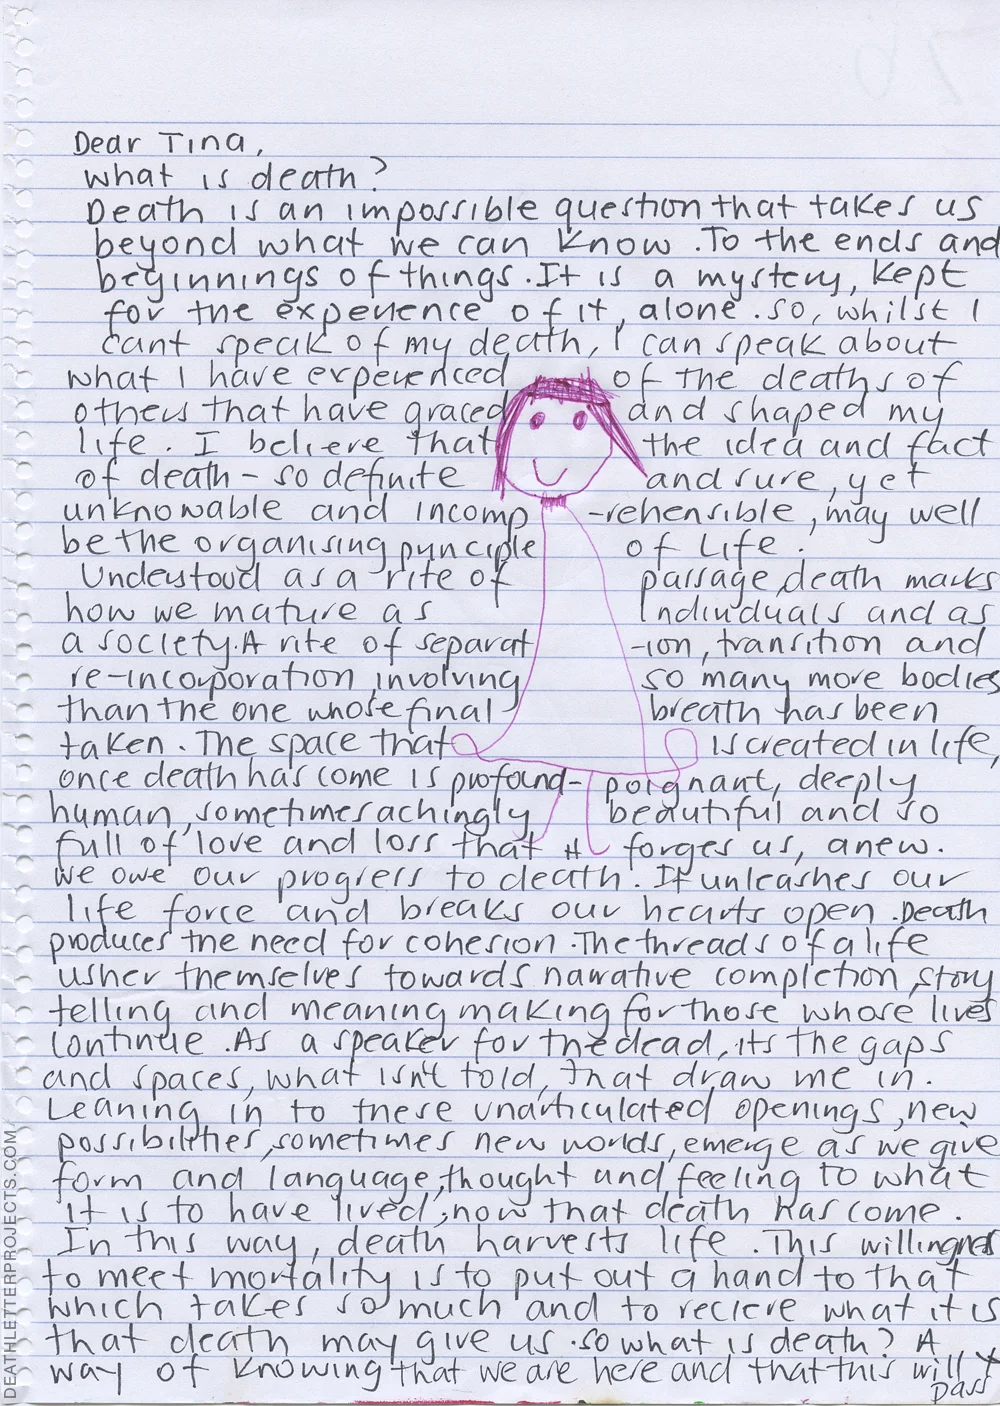 Dear Tina,
What is death?
Death is an impossible question that takes us
beyond what we can know. To the ends and
beginnings of things. It is a mystery, kept
for the experience of it, alone. So, whilst I
cant speak of my death, I can speak about
what I have experienced of the deaths of
others that have graced and shaped my
life. I believe that the idea and fact
of death - so definite and sure, yet
unknowable and incomp -rehensible, may well
be the organising principle of Life.
Understood as a rite of passage, death marks
how we mature as Individuals and as
a society. A rite of separat -ion, transition and
re-incorporation, involving so many more bodies
than the one whose final breath has been
taken. The space that is created in life,
once death has come is profound- poignant, deeply
human, sometimes achingly beautiful and so
full of love and loss that it forges us, anew.
We owe our progress to death. It unleashes our
life force and breaks our hearts open. Death
produces the need for cohesion. The threads of a life
usher themselves towards narrative completion, story
telling and meaning making for those whose lives
continue. As a speaker for the dead, its the gaps
and spaces, what isn't told, that draw me in.
Leaning in to these unarticulated openings, new
possibilities, sometimes new worlds, emerge as we give
form and language, thought and feeling to what
it is to have lived, now that death has come.
In this way, death harvests life. This willingness
to meet mortality is to put out a hand to that
which takes so much and to recieve what it is
that death may give us. So what is death? A
way of knowing that we are here and that this will
pass
DEATHLETTERPROJECTS.COM